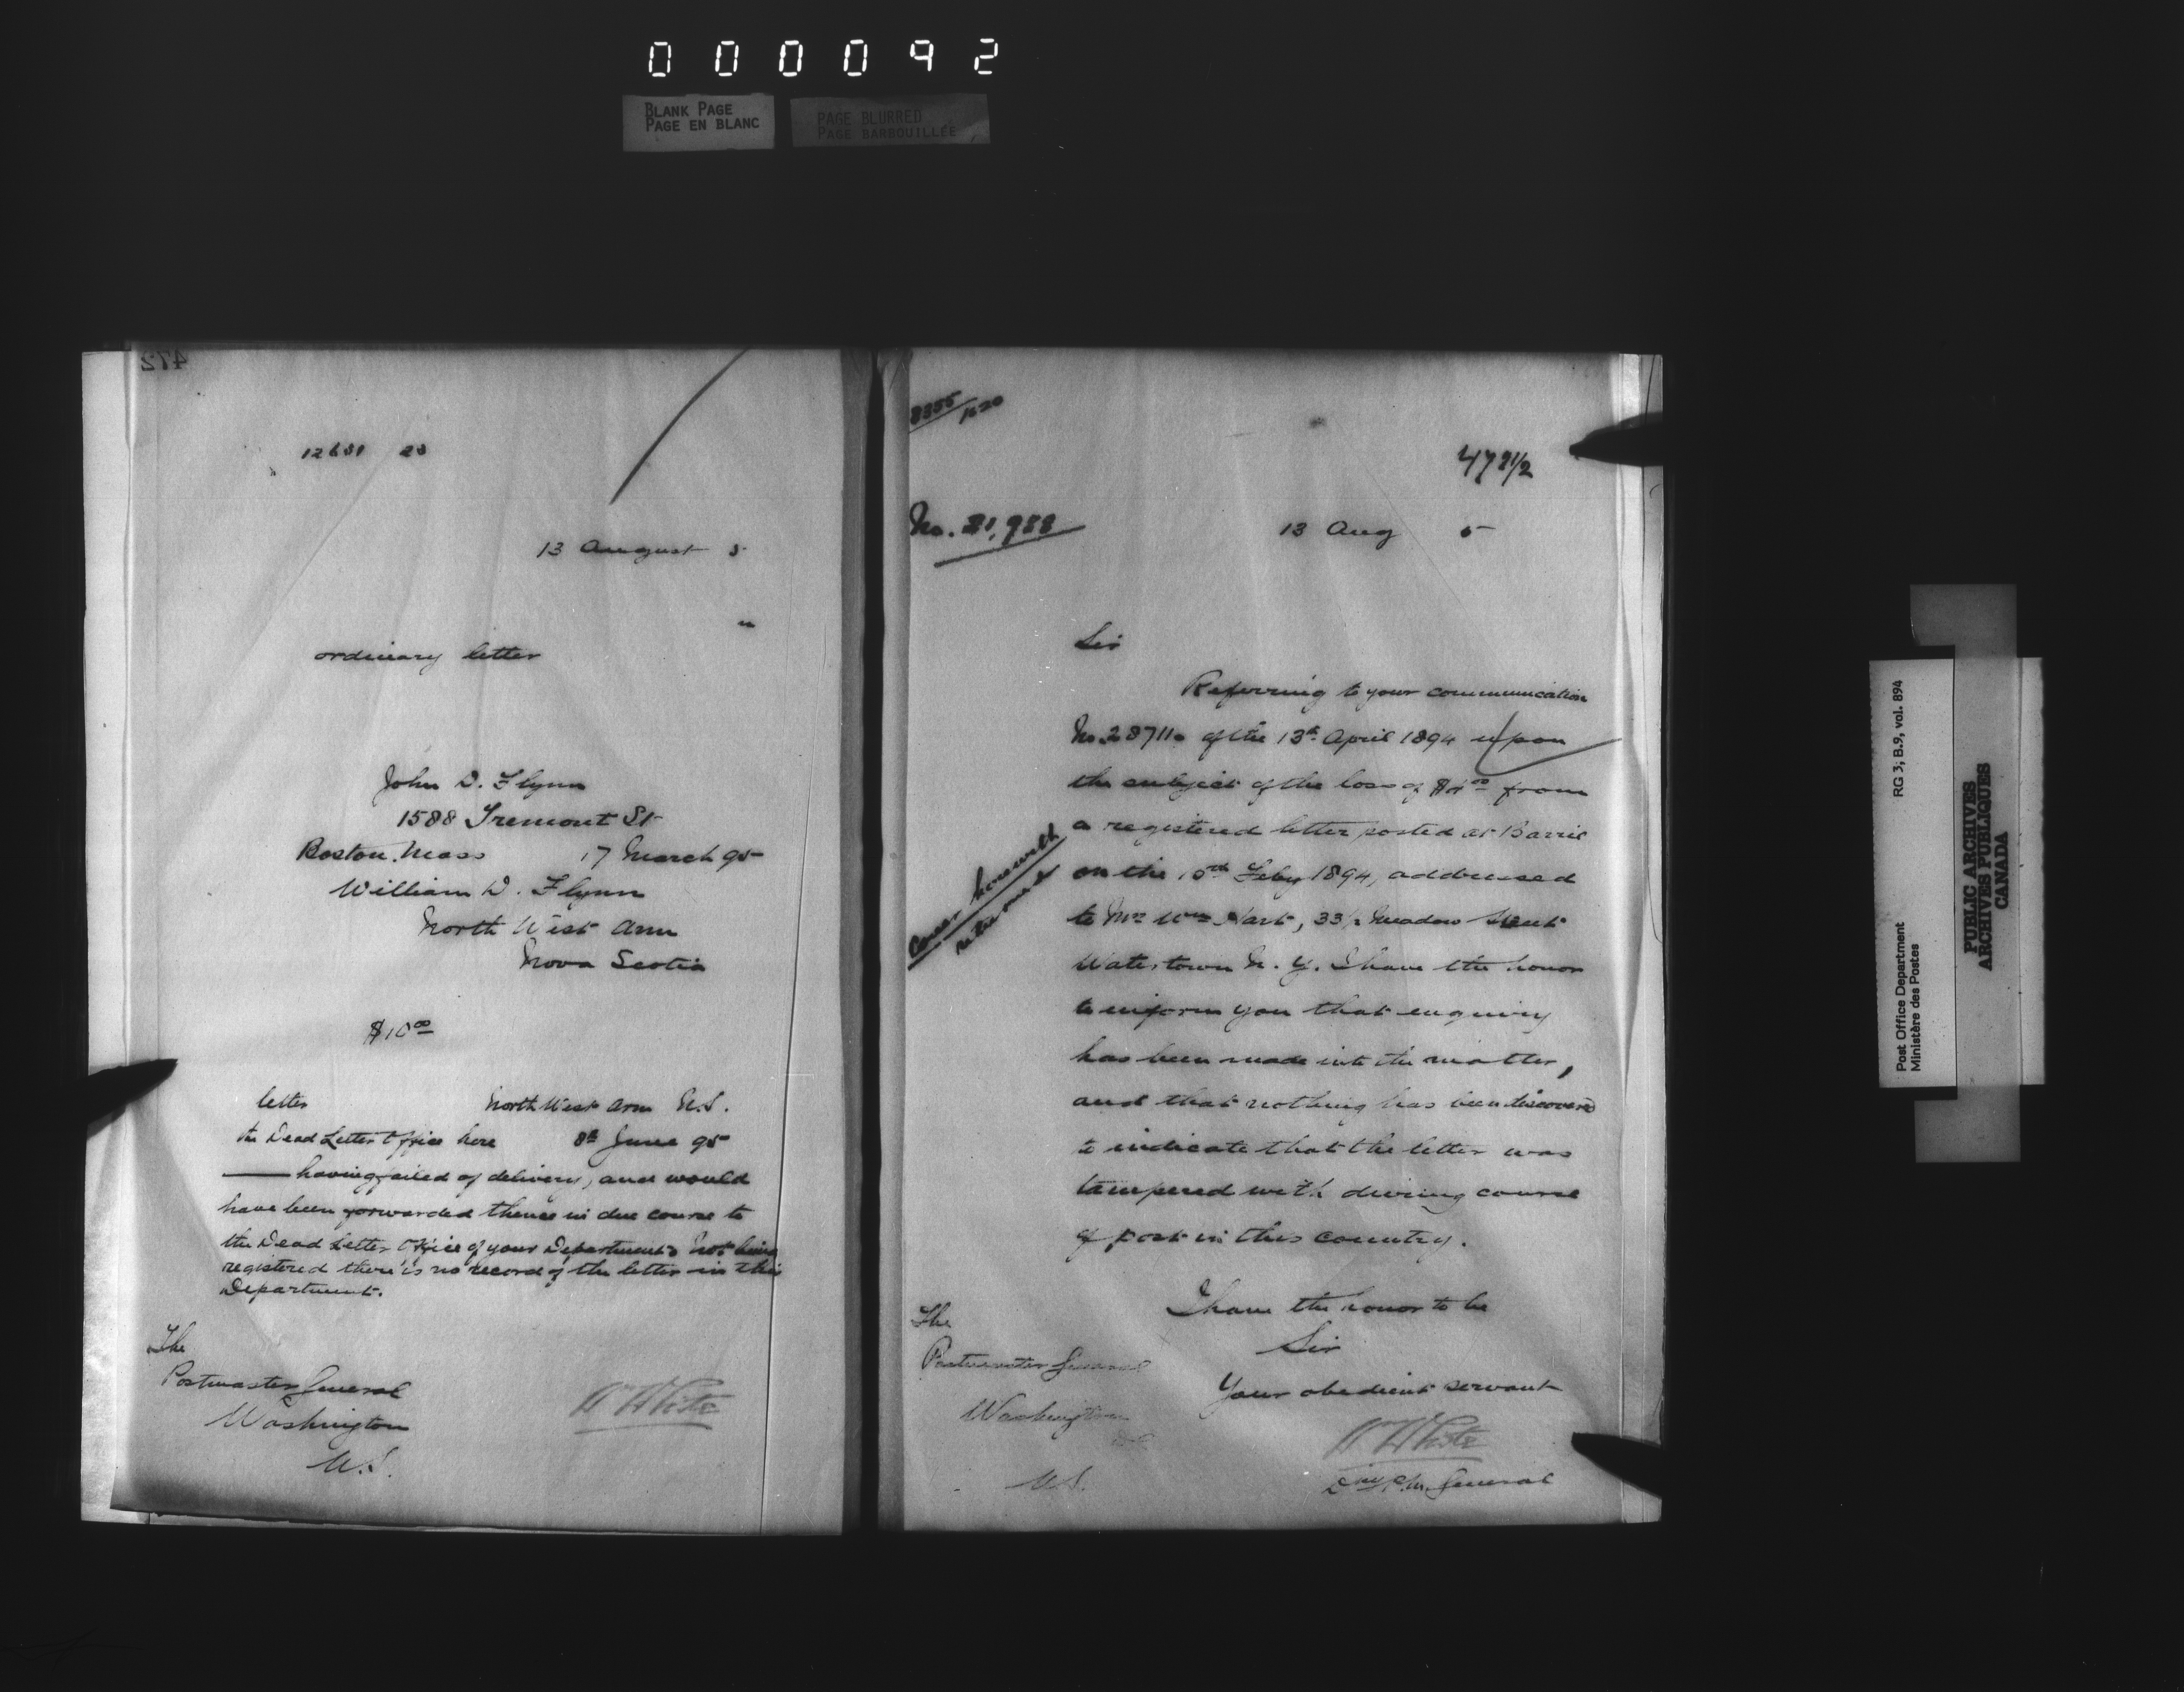 000092
BLANK PAGE
PAGE EN BLANC
PAGE BLURRED
PAGE BARBOUILLÉE
472
13 August 5
ordinary letter
John D. Flynn
1588 Tremont St
Boston. Mass 17 March 95
William D. Flynn
North West Arm
Nova Scotia
$10 00
letter North West Arm N.S.
the Dead Letter Office here 8th June 95
having failed of delivery, and would
have been forwarded thence in due course to
the Dead Letter Office of your Department. Not being
registered there is no record of the letter in this
Department.
The
Postmaster General
Washington
U.S.
W White
8355/
472 1/2
No. 21,988
13 Aug 5
Sir
Referring to your communication
No. 28711 of the 13th April 1894 upon
the subject of the loss of from
a registered letter posted at Barrie
on the Feby 1894, addressed
to Mr Wm Hart, 33 1/2 Meadow Street
Watertown N.Y. I have the honor
to inform you that enquiry
has been made into the matter,
and that nothing has been discovered
to indicate that the letter was
tampered with during course
of post in this country.
herewith
returned
I have the honor to be
Sir
Your obedient servant
W White
Dy P.M. General
The
Postmaster General
Washington
U.S.
Post Office Department RG 3, B.9, vol. 894
Ministère des Postes
PUBLIC ARCHIVES
ARCHIVES PUBLIQUES
CANADA